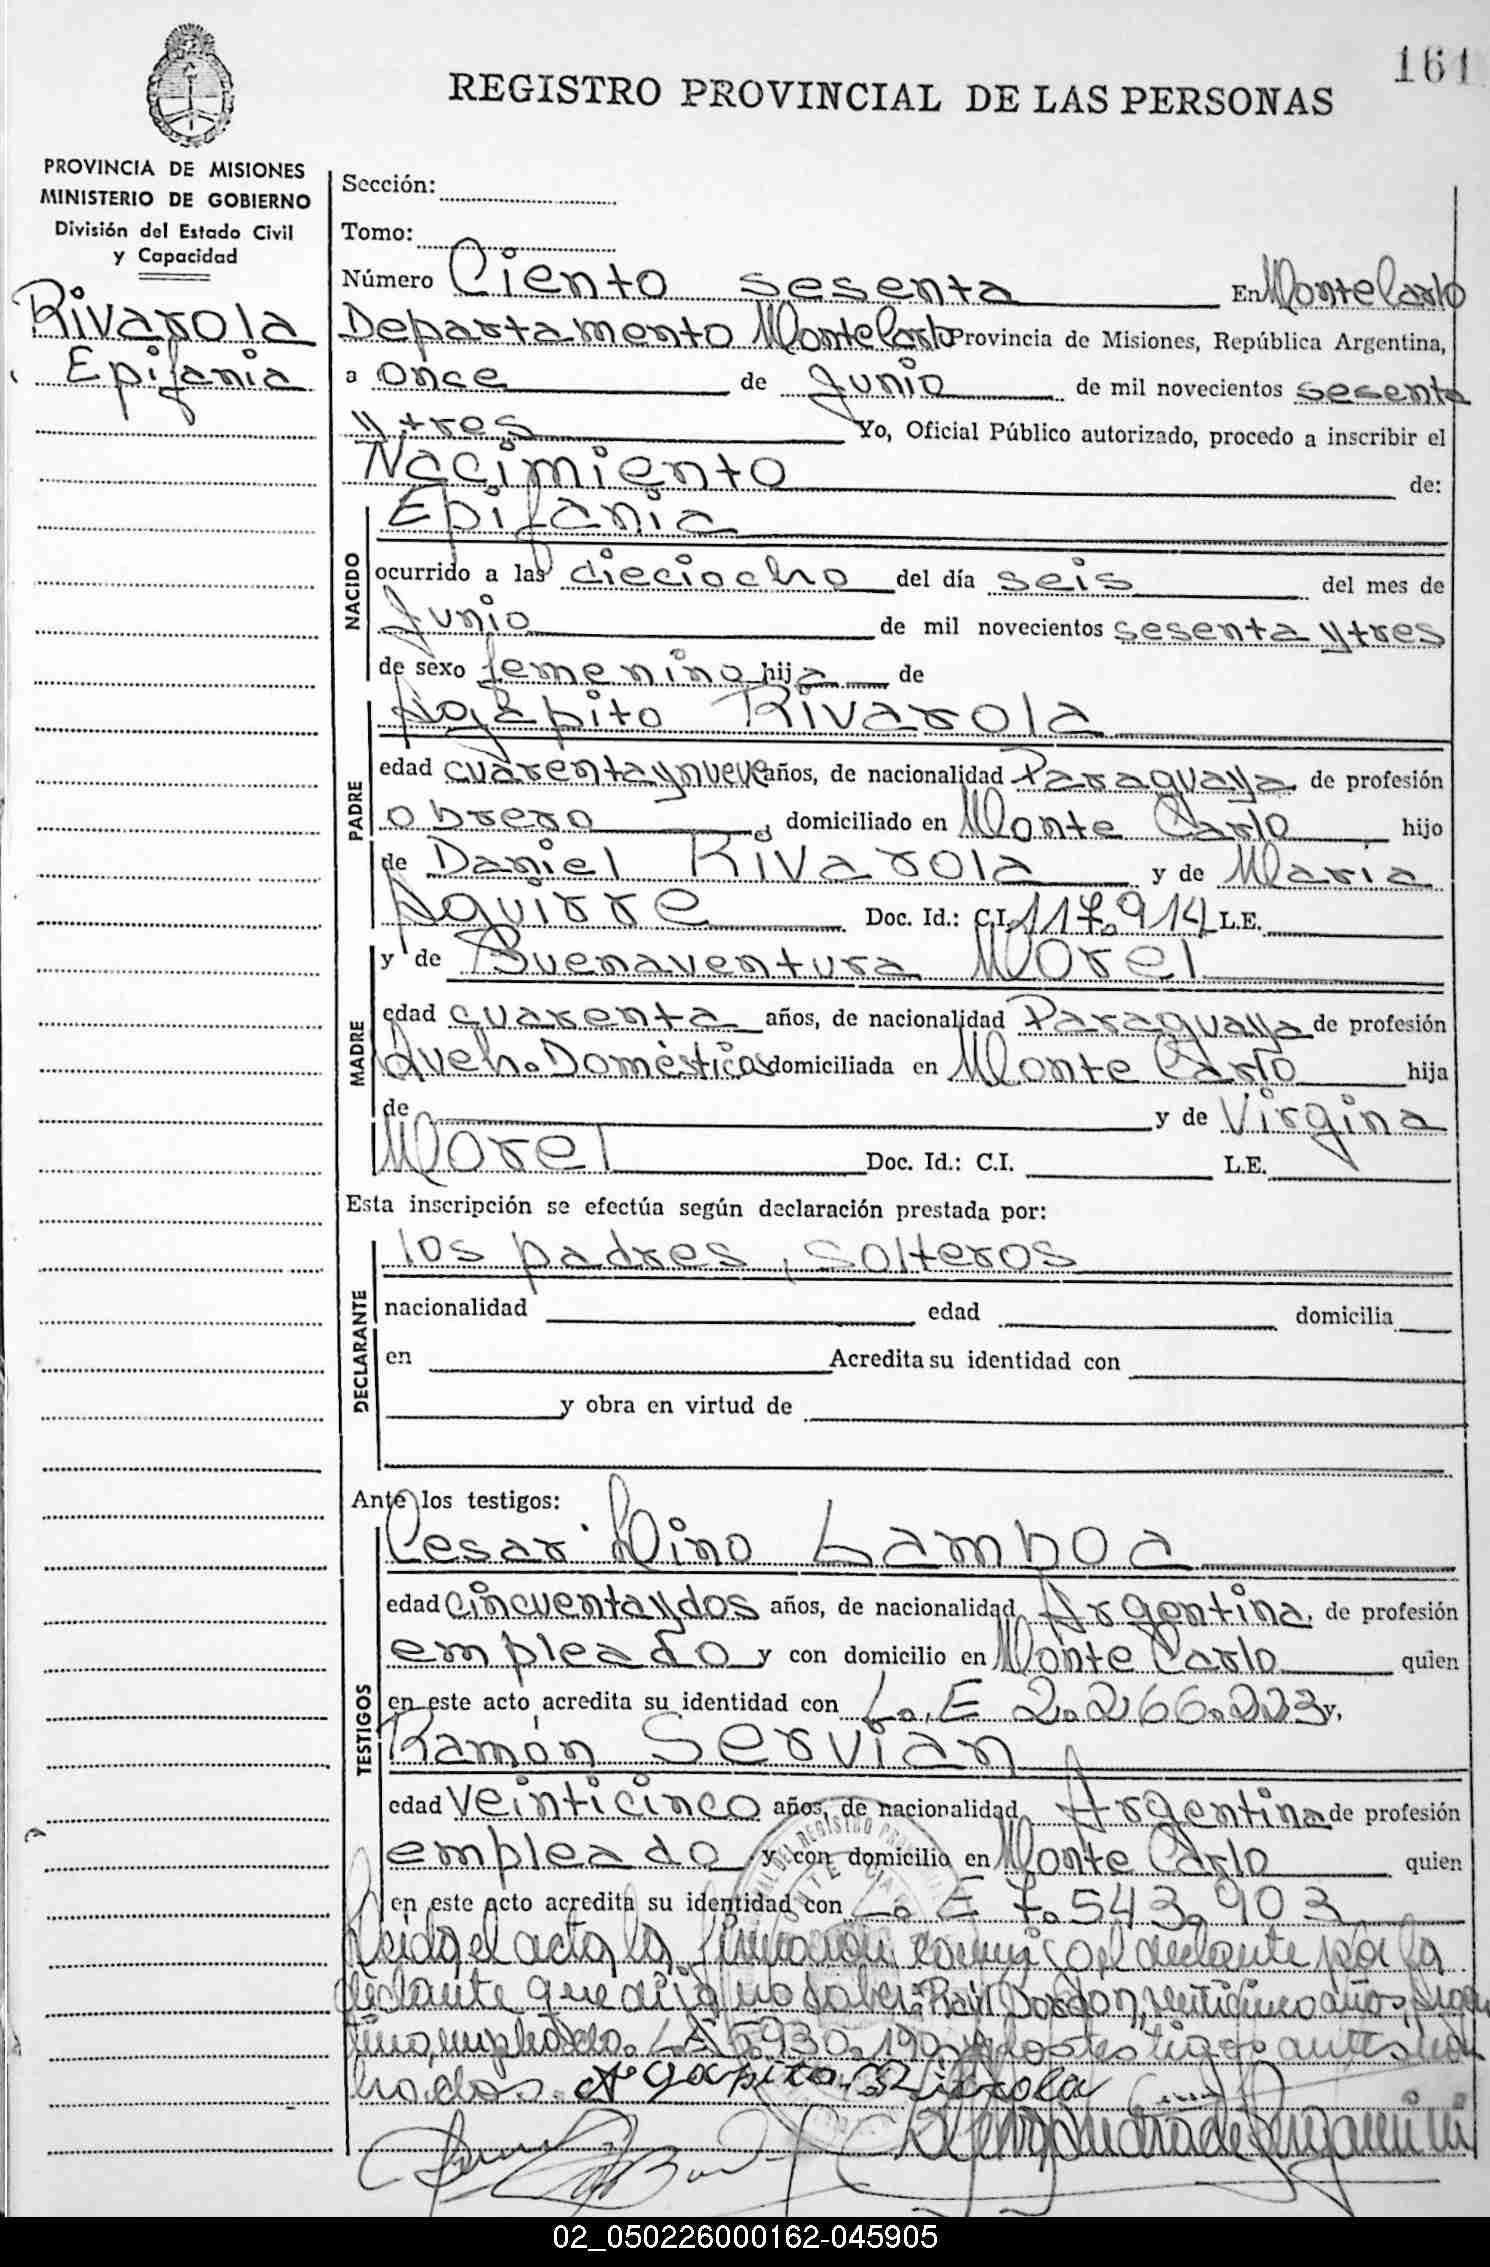 161
REGISTRO PROVINCIAL DE LAS PERSONAS
PROVINCIA DE MISIONES
MINISTERIO DE GOBIERNO
División del Estado Civil
y Capacidad
Rivarola
Epifania
Sección:
Tomo:
Número Ciento sesenta En Montecarlo
Departamento Montecarlo Provincia de Misiones, República Argentina,
a once de Junio de mil novecientos sesenta
y tres Yo, Oficial Público autorizado, procedo a inscribir el
Nacimiento de:
NACIDO
Epifania
ocurrido a las dieciocho del día seis del mes de
Junio de mil novecientos sesenta y tres
de sexo femenino hija de
PADRE
Agapito Rivarola
edad cuarenta y nueve años, de nacionalidad Paraguaya de profesión
obrero domiciliado en Monte Carlo hijo
de Daniel Rivarola y de Maria
Aguirre Doc. Id.: C.I. 117.914 L.E.
MADRE
y de Buenaventura Morel
edad cuarenta años, de nacionalidad Paraguaya de profesión
Queh. Domésticos domiciliada en Monte Carlo hija
de y de Virgina
Morel Doc. Id.: C.I. L.E.
Esta inscripción se efectúa según declaración prestada por:
DECLARANTE
los padres, solteros
nacionalidad edad domicilia
en Acredita su identidad con
y obra en virtud de
Ante los testigos:
TESTIGOS
Cesar Dino Lamboa
edad cincuenta y dos años, de nacionalidad Argentina de profesión
empleado y con domicilio en Monte Carlo quien
en este acto acredita su identidad con L. E 2.266.223 y,
Ramón Servian
edad veinticinco años, de nacionalidad Argentina de profesión
empleado y con domicilio en Monte Carlo quien
en este acto acredita su identidad con L. E 7.543.903
Leida el acta la firmaron conmigo el declante por la
declante que dijo no saber: Raúl Dordon, veinticinco años,
empleado. L.E 5.930.190 y los testigos antes
Agapito Rivarola
02_050226000162-045905